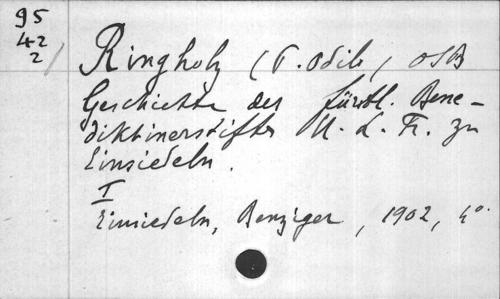 95
42
2
Ringholz (P. Odilo) OSB
Geschichte des fürstl. Bene-
diktinerstiftes U. L. Fr. zu
Einsiedeln.
I
Einsiedeln, Benziger, 1902, 4°.